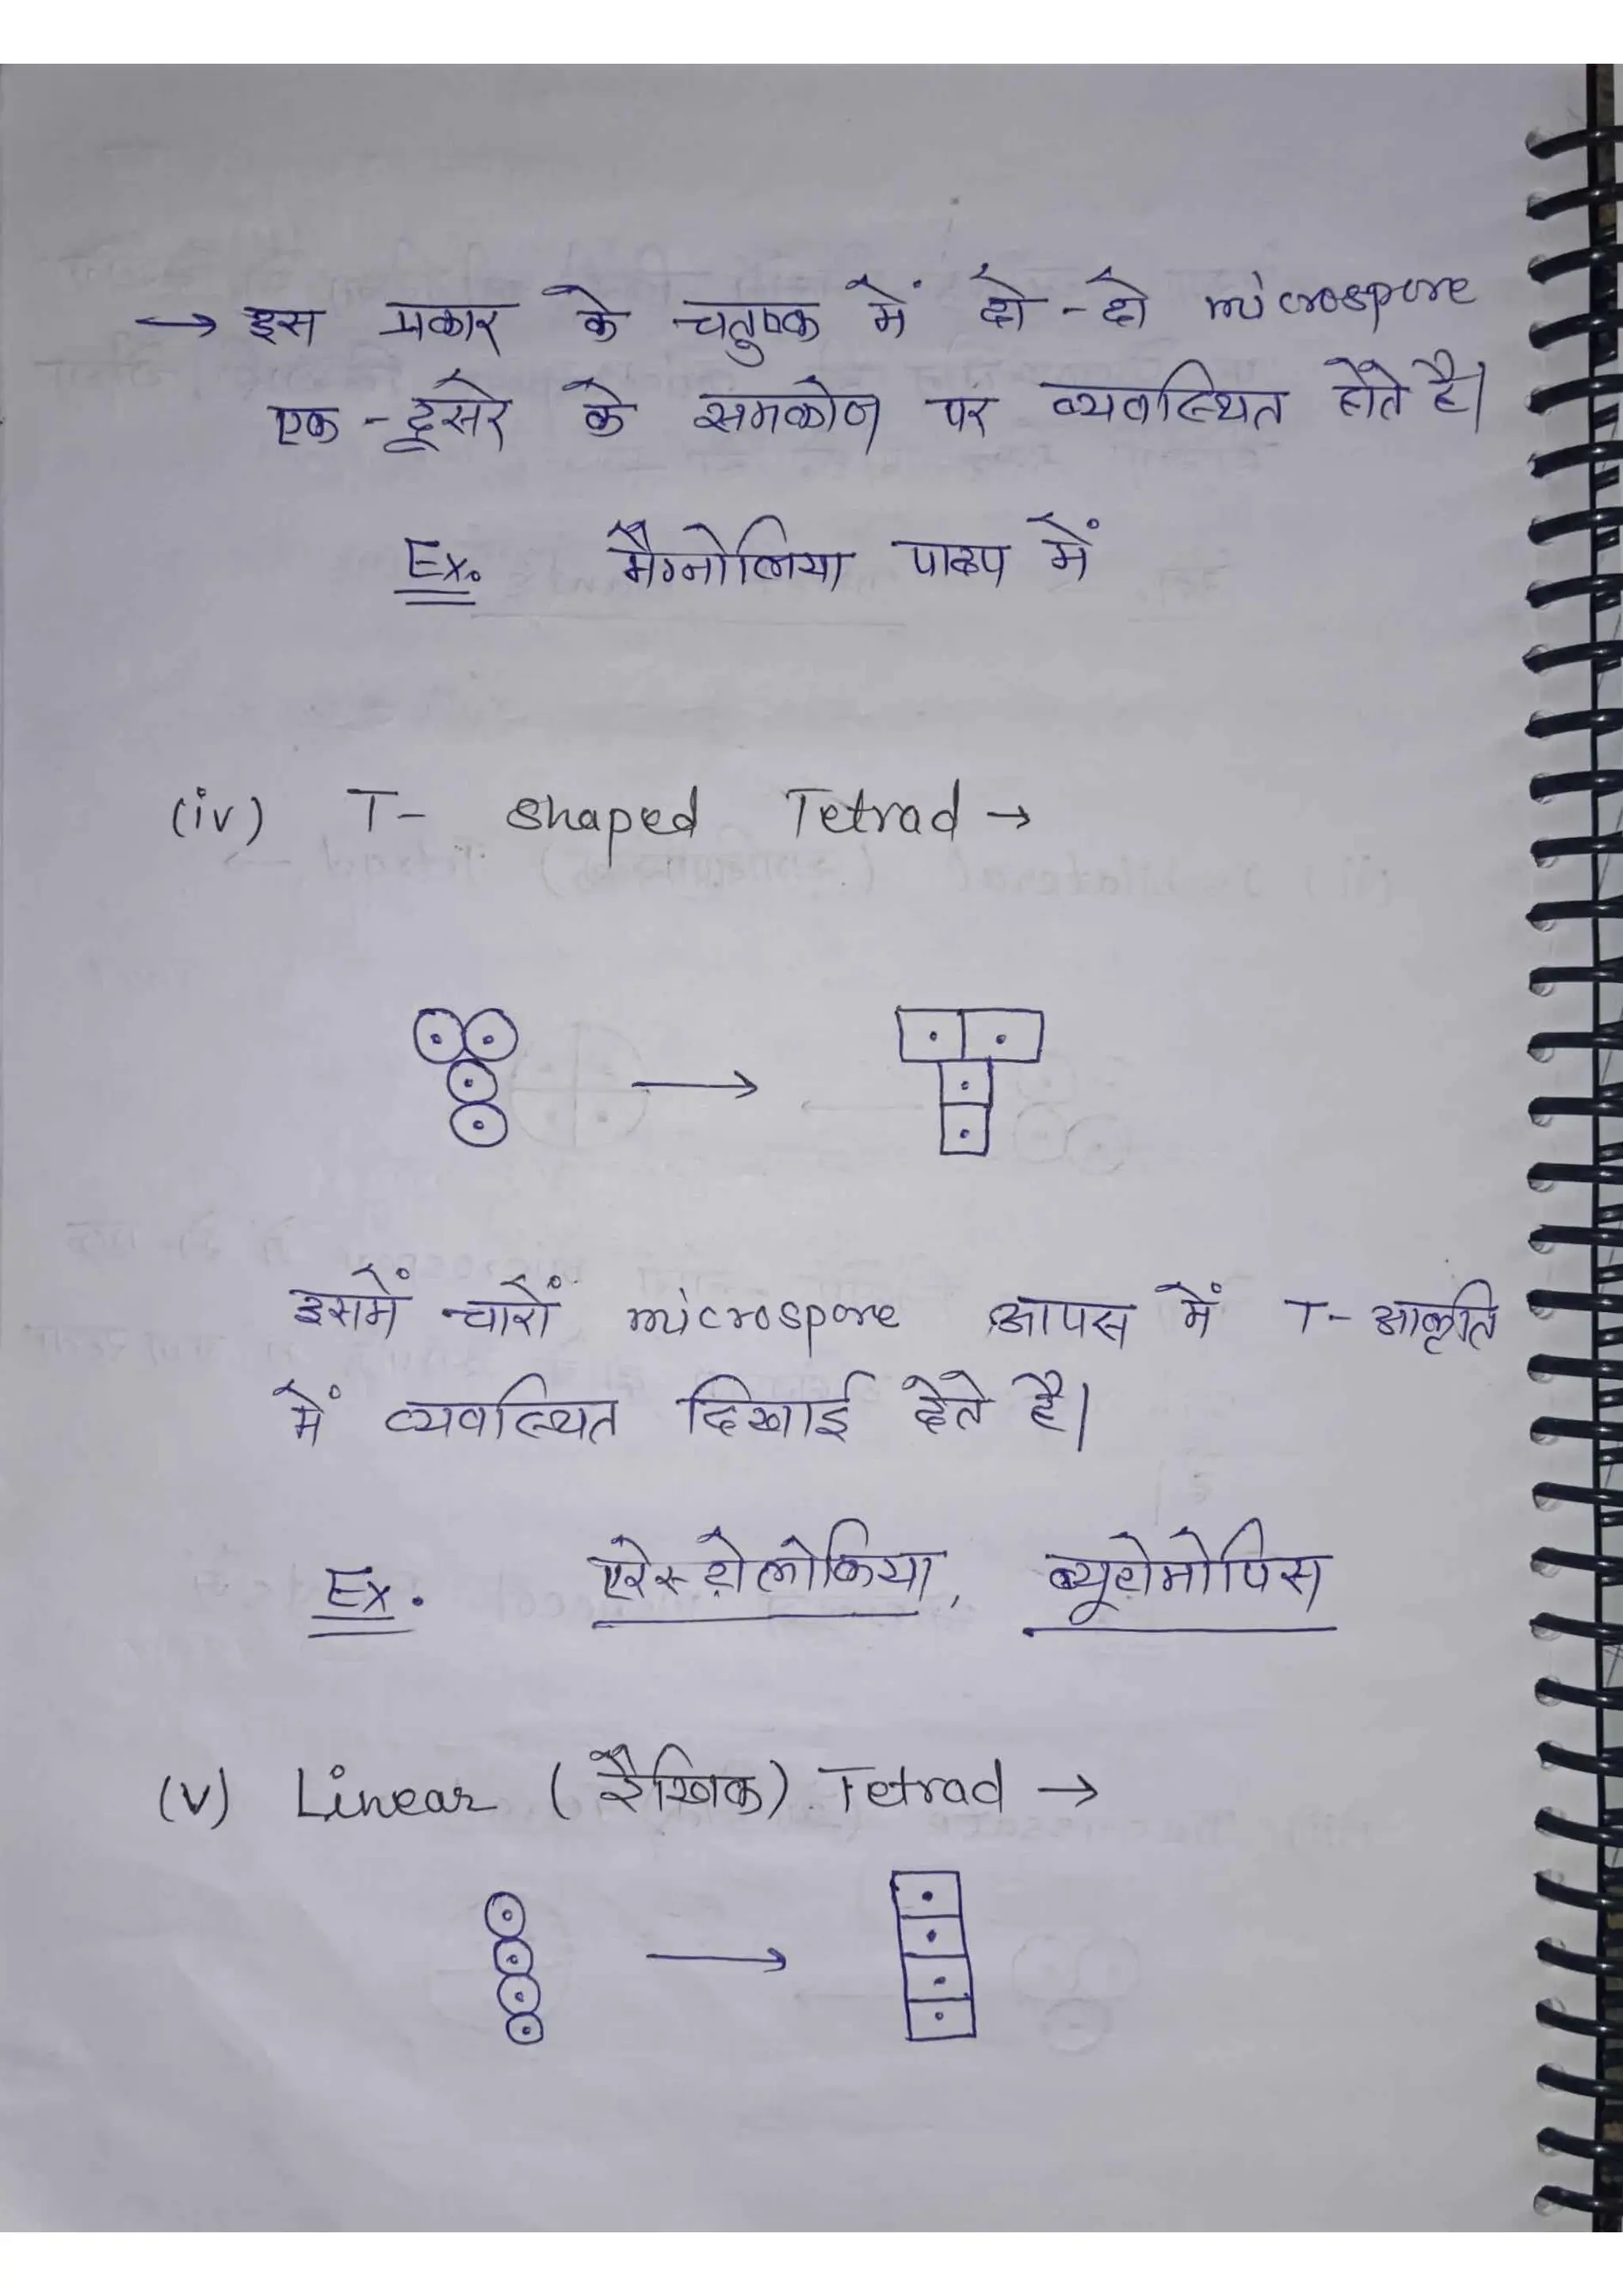 → इस प्रकार के चतुष्क में दो-दो microspore
एक-दूसरे के समकोण पर व्यवस्थित होते है।
Ex. मैग्नोलिया पादप में
(iv) T- shaped Tetrad →
इसमें चारों microspore आपस में T-आकृति
में व्यवस्थित दिखाई देते है।
Ex. एरेस्टोलोकिया, ब्यूटोमोपिस
(v) Linear (रैखिक) Tetrad →